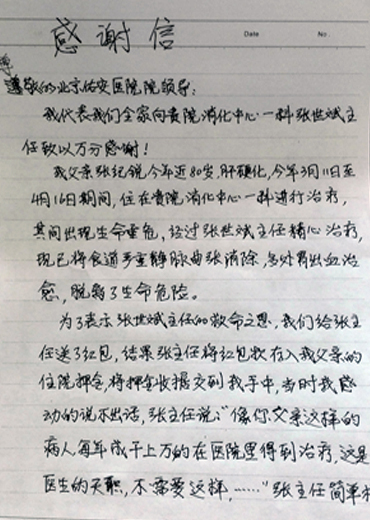 感谢信
Date No.
尊
敬的北京佑安医院院领导:
我代表我们全家向贵院消化中心一科张世斌主
任致以万分感谢!
我父亲张纪锐今年近80岁,肝硬化,今年3月11日至
4月16日期间,住在贵院消化中心一科进行治疗,
其间出现生命垂危,经过张世斌主任精心治疗,
现已将食道严重静脉曲张消除,多处胃出血治
愈,脱离了生命危险。
为了表示张世斌主任的救命之恩,我们给张主
任送了红包,结果张主任将红包钱存入我父亲的
住院押金,将押金收据交到我手中,当时我感
动的说不出话,张主任说:“像你父亲这样的
病人每年成千上万的在医院里得到治疗,这是
医生的天职,不需要这样,……”张主任简单